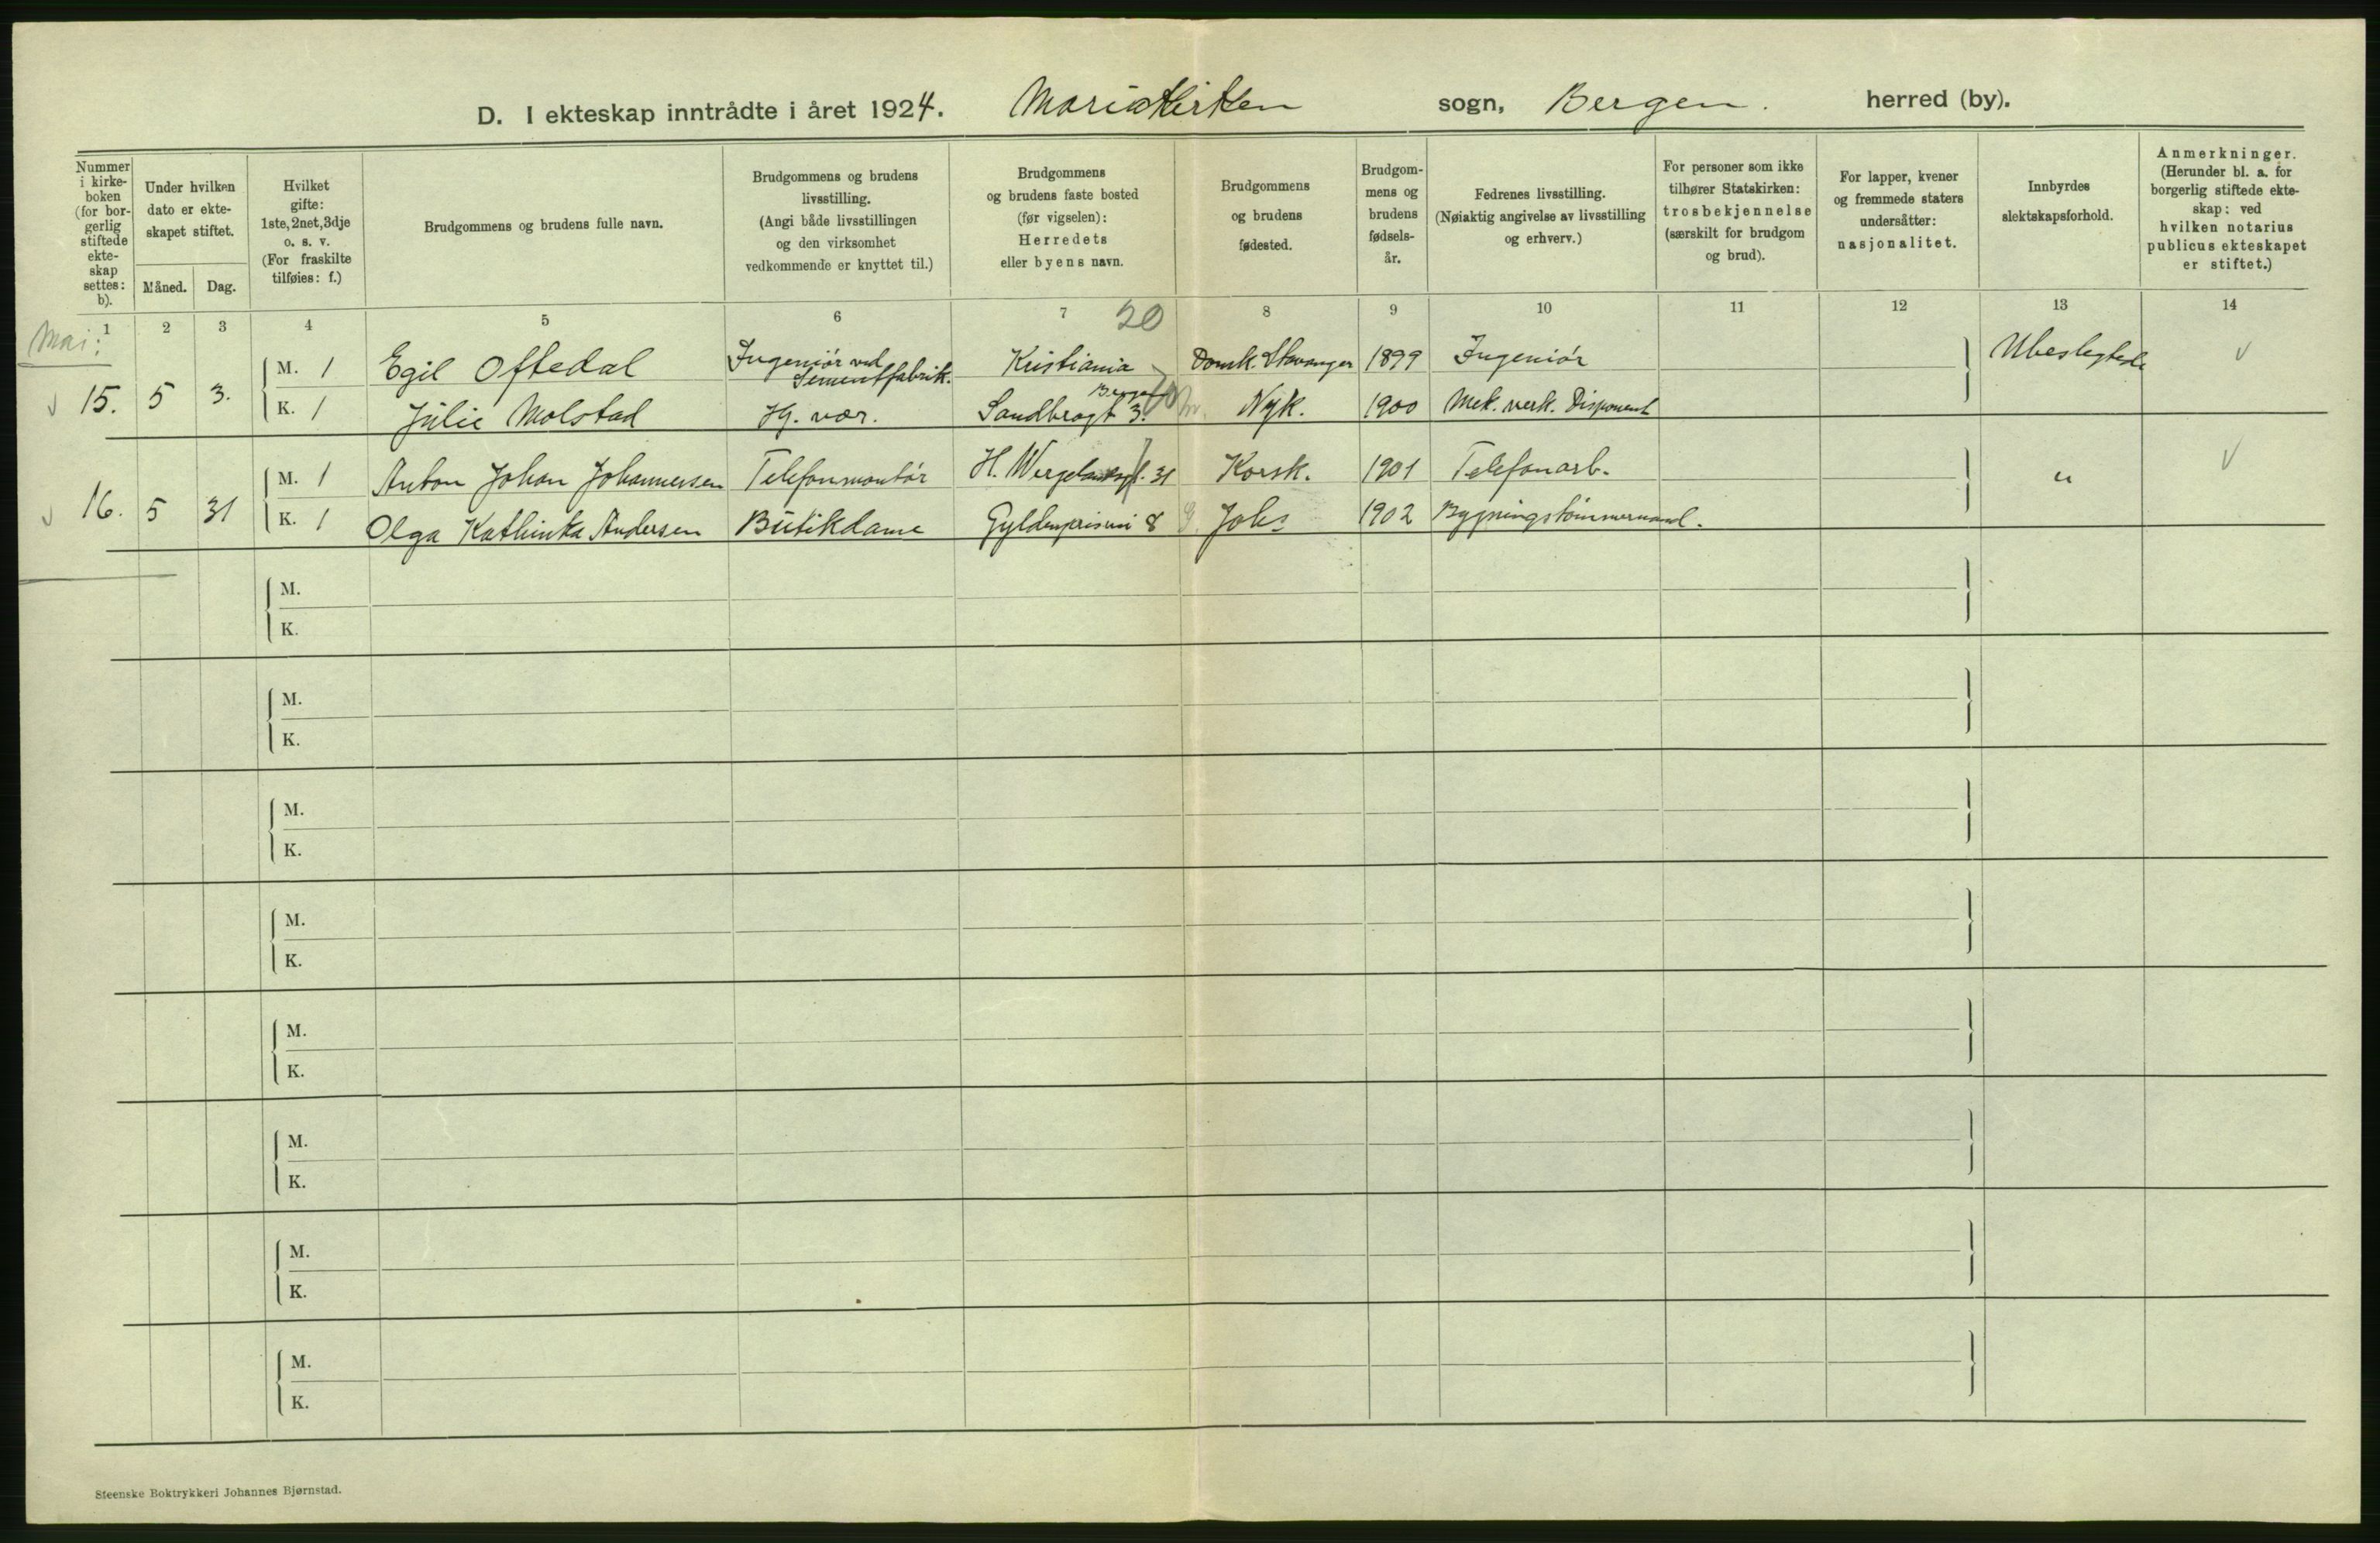 D. I ekteskap inntrådte i året 1924. Mariakirken sogn, Bergen. herred (by).
Nummer i kirke-boken (for bor-gerlig stiftede ekte-skap settes: b).
Under hvilken dato er ekte-skapet stiftet.
Måned. Dag.
Hvilket gifte: 1ste, 2net, 3dje o. s. v. (For fraskilte tilføies: f.)
Brudgommens og brudens fulle navn.
Brudgommens og brudens livsstilling. (Angi både livsstillingen og den virksomhet vedkommende er knyttet til.)
Brudgommens og brudens faste bosted (før vigselen): Herredets eller byens navn.
Brudgommens og brudens fødested.
Brudgom-mens og brudens fødsels-år.
Fedrenes livsstilling. (Nøiaktig angivelse av livsstilling og erhverv.)
For personer som ikke tilhører Statskirken: trosbekjennelse (særskilt for brudgom og brud).
For lapper, kvener og fremmede staters undersåtter: nasjonalitet.
Innbyrdes slektskapsforhold.
Anmerkninger. (Herunder bl. a. for borgerlig stiftede ekte-skap: ved hvilken notarius publicus ekteskapet er stiftet.)
1 2 3 4 5 6 7 20 8 9 10 11 12 13 14
Mai:
15. 5 3. M. 1 Egil Oftedal Ingeniør ved Sementfabrik. Kristiania Domk. Stavanger 1899 Ingeniør Ubeslegtede
K. 1 Julie Molstad Hj. vær. Sandbrogt 3. Bergen Nyk. 1900 Mek. verk. Disponent
16. 5 31 M. 1 Anton Johan Johannessen Telefonmontør H. Wergelandsgt. 31 Korsk. 1901 Telefonarb. "
K. 1 Olga Kathinka Andersen Butikdame Gyldenprisvei 8 Johs 1902 Bygningstømmermand.
M.
K.
M.
K.
M.
K.
M.
K.
M.
K.
M.
K.
M.
K.
M.
K.
Steenske Boktrykkeri Johannes Bjørnstad.